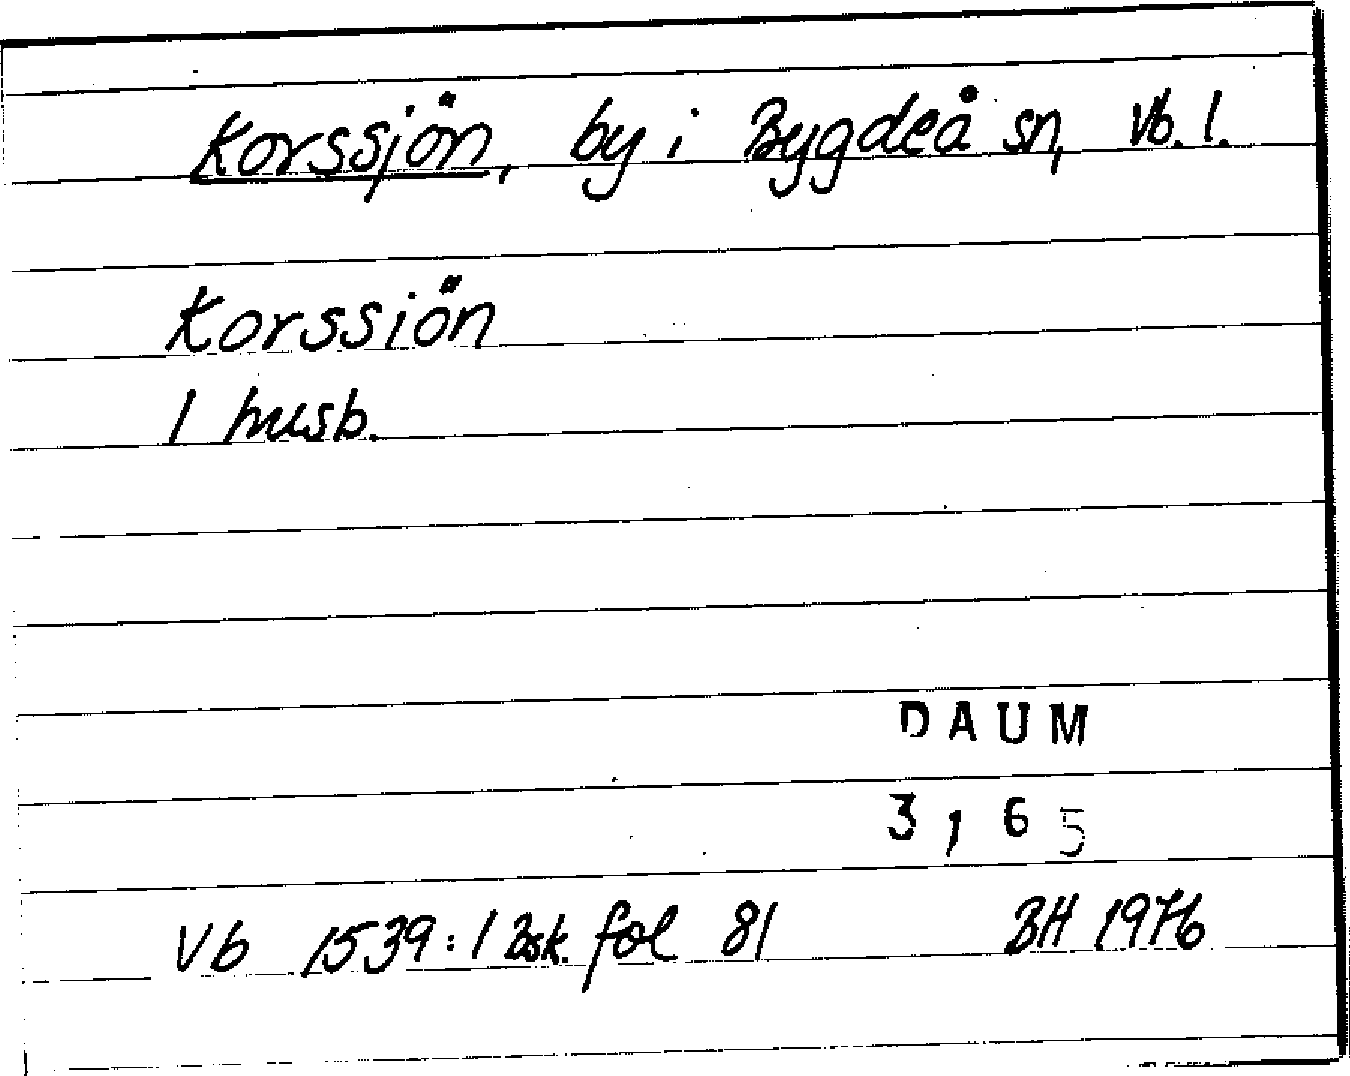 Korssjön, by i Bygdeå sn, Vb. l.
Korssiön
1 husb.
DAUM
3165
Vb 1539:1 Bsk. fol 81 BH 1976